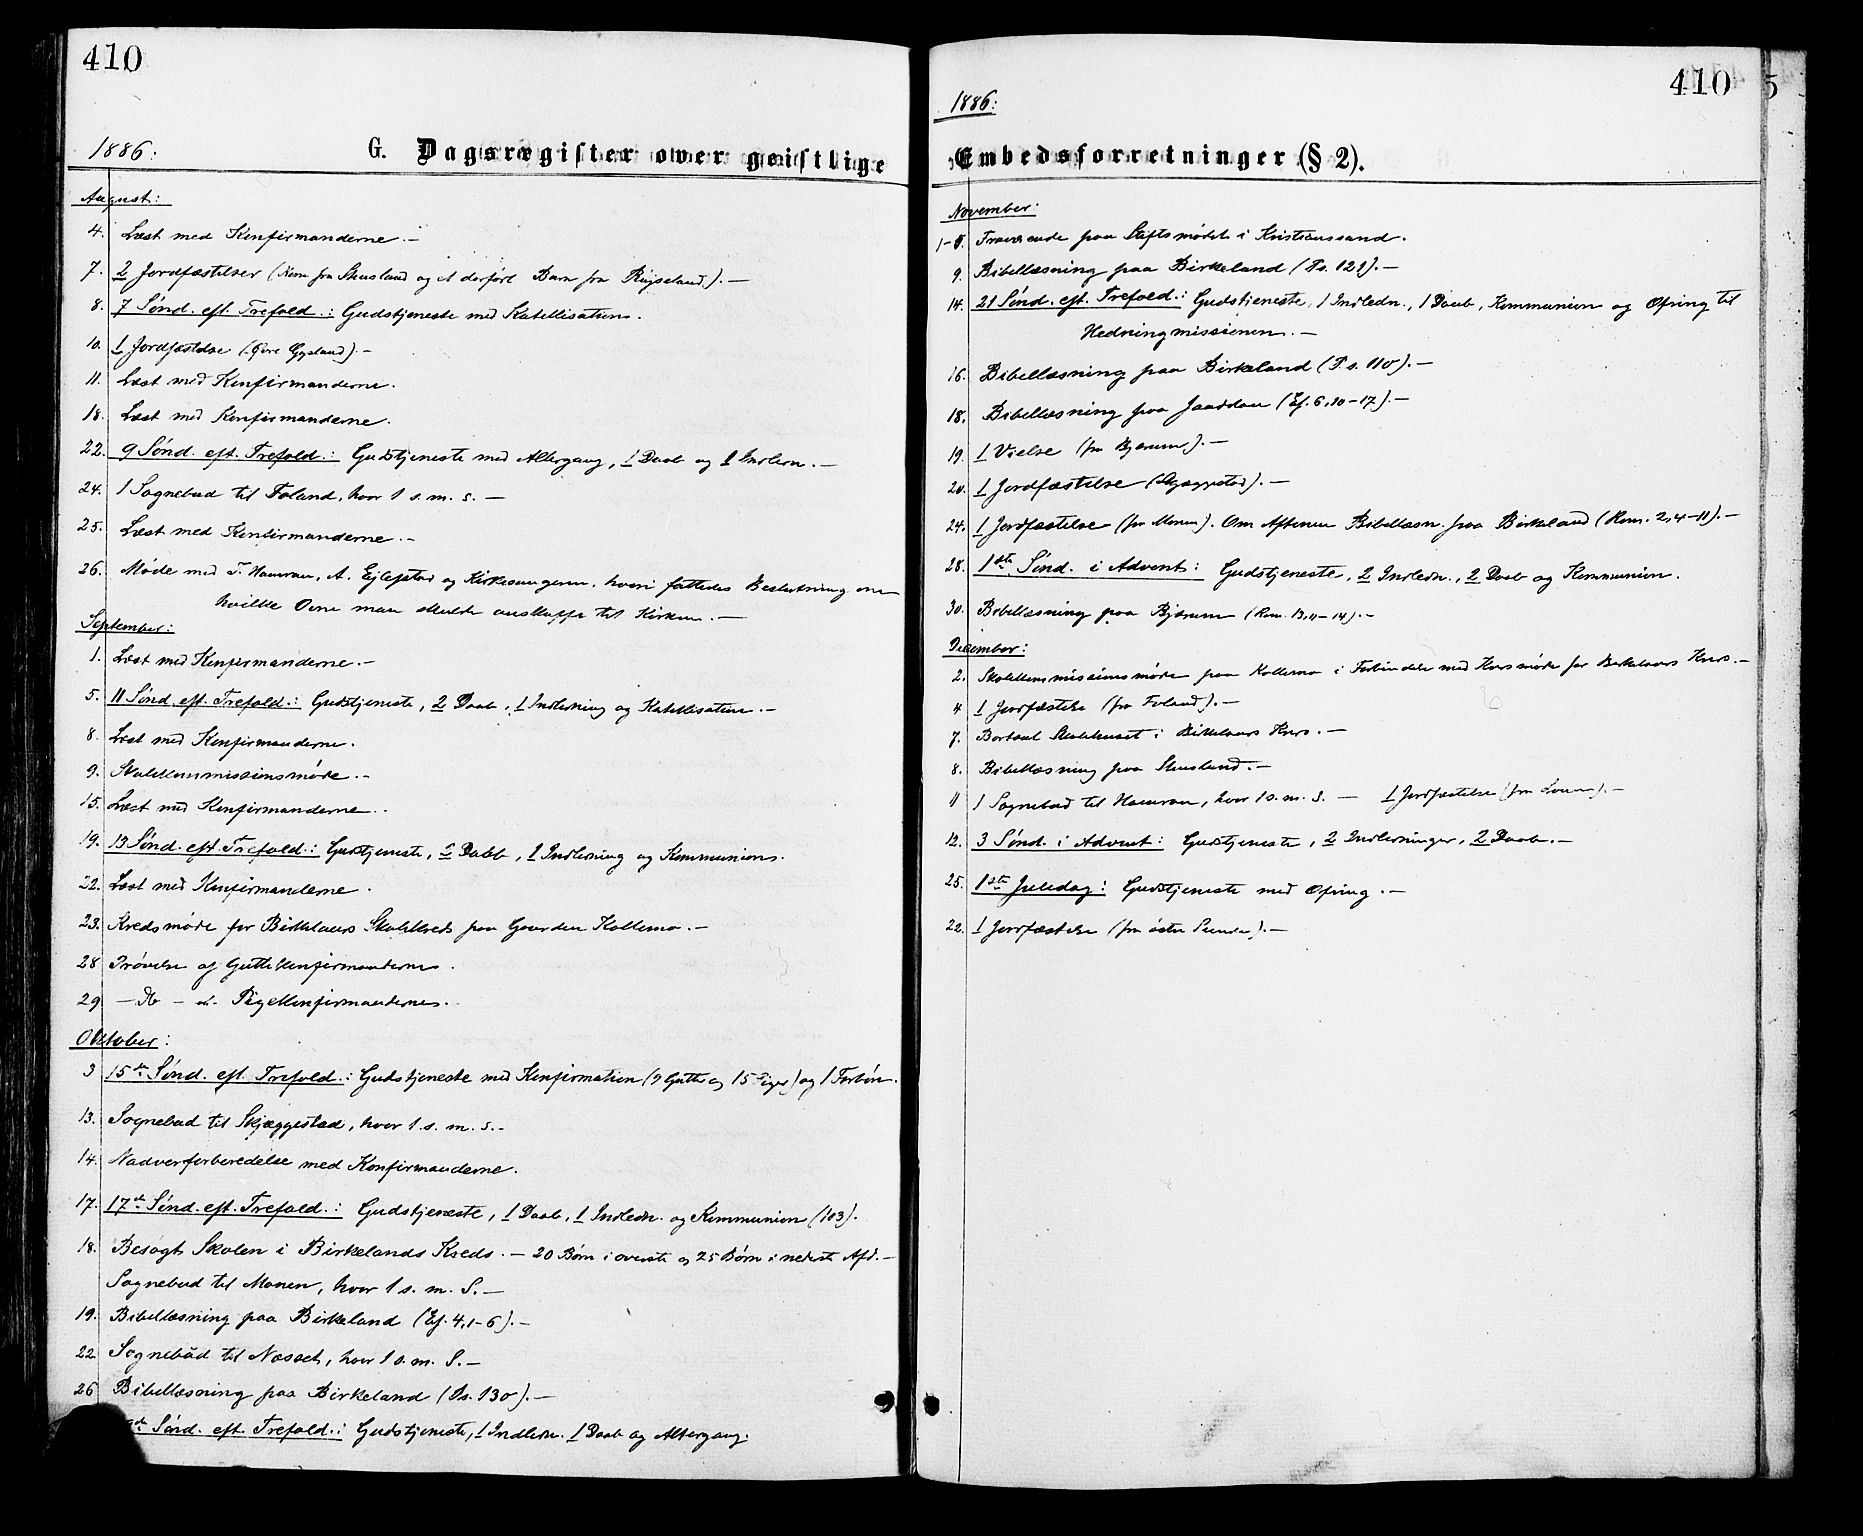 410
1886:
G. Dagsregister over geistlige
August:
4. Læst med Konfirmanderne. —
7. 2 Jordfæstelser (Nem fra Skusland og et derført Barn fra Rügseland). —
8. 7 Sønd. eft. Trefold.: Gudstjeneste med Katekisation.
10. 1 Jordfæstelse (Øvre Gysland). —
11. Læst med Konfirmanderne.
18. Læst med Konfirmanderne.
22. 9 Sønd. eft. Trefold.: Gudstjeneste med Altergang, 1 Daab og 1 Indledn. —
24. 1 Sognebud til Foland, hvor 1 s. m. s. —
25. Læst med Konfirmanderne. —
26. Møde med T. Hamran, A. Ejlefstad og Kirkesangeren, hvori fattedes Beslutning om
hvilke Ovne man skulde anskaffe til Kirken. —
September:
1. Læst med Konfirmanderne. —
5. 11 Sønd. eft. Trefold.: Gudstjeneste, 2 Daab, 1 Indledning og Katekisation. —
8. Læst med Konfirmanderne.
9. Skolekommissionsmøde. —
15. Læst med Konfirmanderne.
19. 13 Sønd. eft. Trefold.: Gudstjeneste, 2 Daab, 1 Indledning og Kommunion.
22. Læst med Konfirmanderne.
23. Kredsmøde for Birkelands Skolekreds paa Gaarden Kollemo. —
28 Prøvelse af Guttekonfirmanderne.
29 — Do — af Pigekonfirmanderne.
Oktober:
3 15de Sønd. eft. Trefold.: Gudstjeneste med Konfirmation (9 Gutter og 15 Piger) og 1 Forbøn.
13. Sognebud til Skjæggestad, hvor 1. s. m. s. —
14. Nadverforberedelse med Konfirmanderne.
17. 17de Sønd. eft. Trefold.: Gudstjeneste, 1 Daab, 1 Indledn. og Kommunion (103).
18. Besøgt Skolen i Birkelands Kreds. — 20 Børn i øverste og 25 Børn i nederste Afd. —
Sognebud til Monen, hvor 1 s. m. S. —
19. Bibellæsning paa Birkeland (Ef. 4, 1-6). —
22 Sognebud til Næset, hvor 1 s. m. S. —
26 Bibellæsning paa Birkeland (Ps. 130). —
Sønd. eft. Trefold.: Gudstjeneste, 1 Indledn. 1 Daab og Altergang.
410
1886:
Embedsforretninger (§ 2).
November:
1-5. Fraværende paa Stiftsmødet i Kristianssand.
9. Bibellæsning paa Birkeland (Ps. 121). —
14. 21 Sønd. eft. Trefold.: Gudstjeneste, 1 Indledn., 1 Daab, Kommunion og Ofring til
Hedningmissionen. —
16. Bibellæsning paa Birkeland (Ps. 110). —
18. Bibellæsning paa Jaaddan (Ef. 6, 10-17). —
19. 1 Vielse (fra Bjørum). —
20. 1 Jordfæstelse (Skjæggestad). —
24. 1 Jordfæstelse (fra Monen). Om Aftenen Bibellæsn. paa Birkeland (Rom. 2, 4-11). —
28. 1ste Sønd. i Advent: Gudstjeneste, 2 Indledn., 2 Daab og Kommunion.
30. Bibellæsning paa Bjørum (Rom. 13, 11-14). —
December:
2. Skolekommissionsmøde paa Kollemo i Forbindelse med Kredsmøde for Birkelands Kreds. —
4 1 Jordfæstelse (fra Foland). —
7. Bortsat Skolehuset i Birkelands Kreds. —
8. Bibellæsning paa Skusland. —
11 1 Sognebud til Hamran, hvor 1 s. m. S. — 1 Jordfæstelse (fra Louen). —
12. 3 Sønd. i Advent: Gudstjeneste, 2 Indledninger, 2 Daab. —
25. 1ste Juledag: Gudstjeneste med Ofring. —
22. 1 Jordfæstelse (fra østre Sunde). —